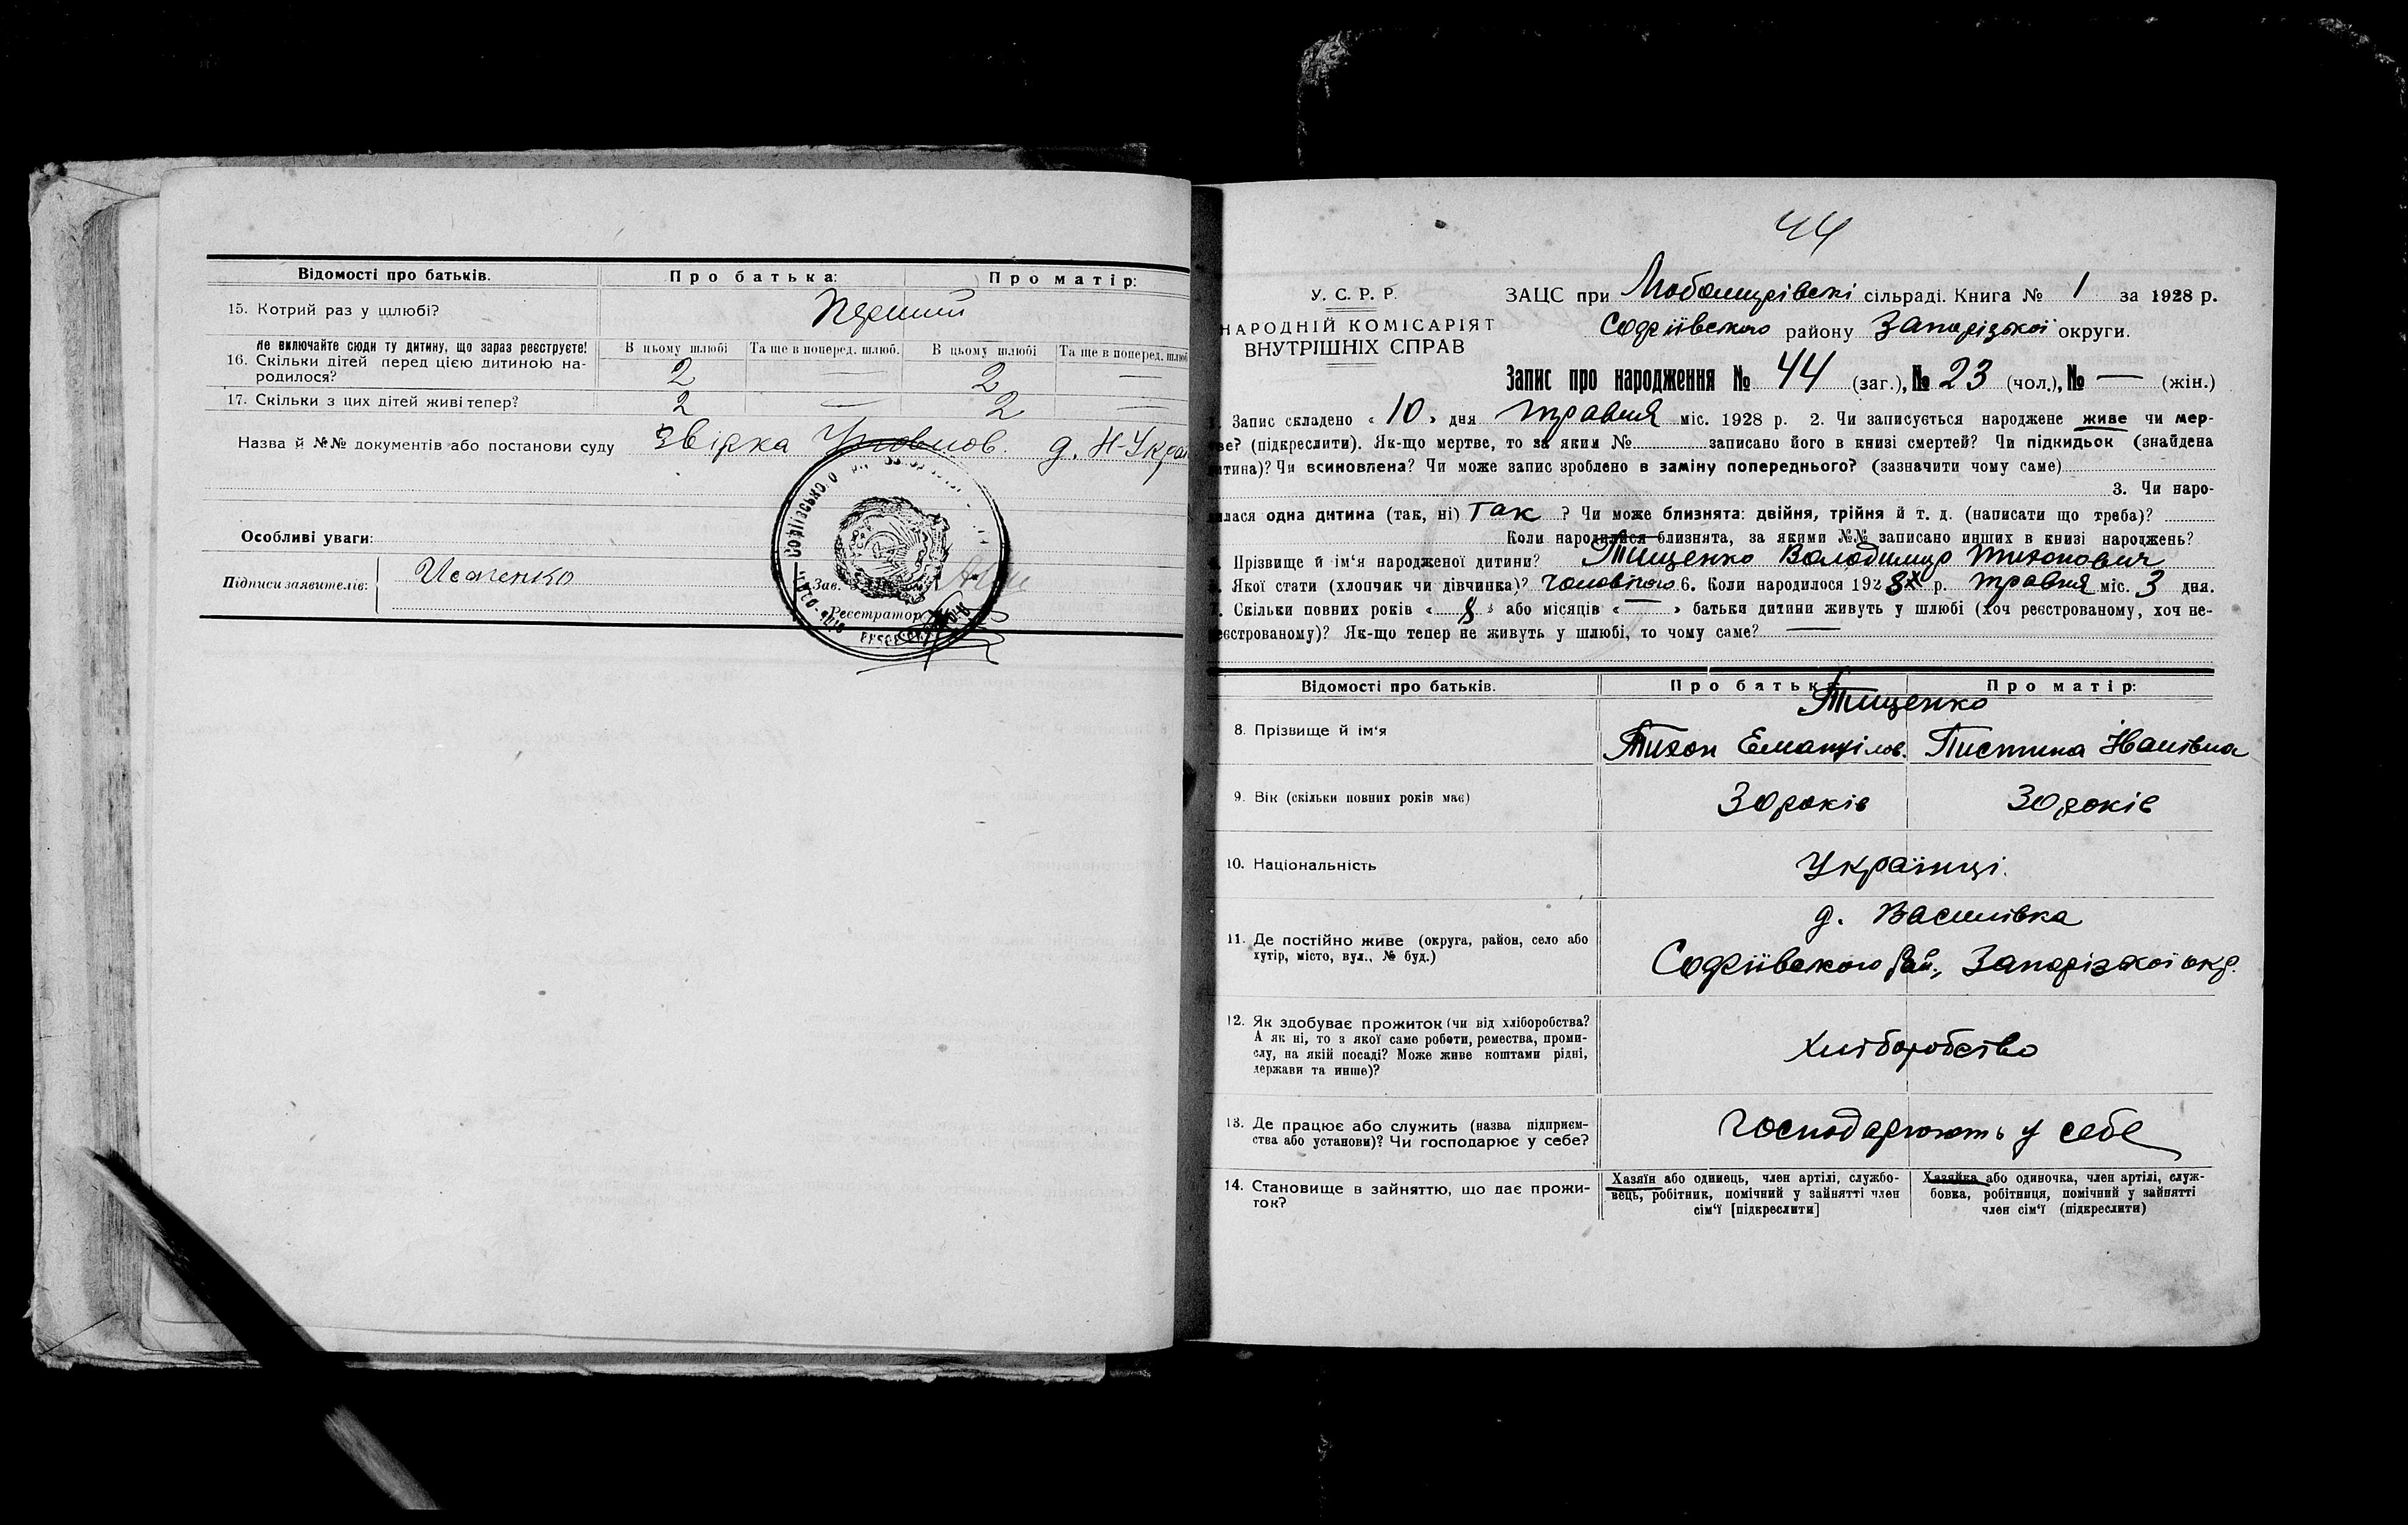 Відомості про батьків. Про батька: Про матір:
15. Котрий раз у шлюбі? Перший
Не включайте сюди ту дитину, що зараз реєструєте! В цьому шлюбі Та ще в поперед. шлюб. В цьому шлюбі Та ще в поперед. шлюб
16. Скільки дітей перед цією дитиною на- 2 — 2 —
родилося?
17. Скільки з цих дітей живі тепер? 2 — 2 —
Назва й №№ документів або постанови суду звірка д. Н-Укра
Особливі уваги:
Підписи заявителів: Исаченко
Зав.
Реєстратор
44
У. С. Р. Р.
НАРОДНІЙ КОМІСАРІЯТ
ВНУТРІШНІХ СПРАВ
ЗАЦС при Любомирівскі сільраді. Книга № 1 за 1928 р.
Софіївского району Запорізької округи.
Запис про народження № 44 (заг.), № 23 (чол.), № — (жін.)
1. Запис складено «10» дня травня міс. 1928 р. 2. Чи записується народжене живе чи мер-
тве? (підкреслити). Як-що мертве, то за яким № записано його в книзі смертей? Чи підкидьок (знайдена
дитина)? Чи всиновлена? Чи може запис зроблено в заміну попереднього? (зазначити чому саме)
3. Чи наро-
дилася одна дитина (так, ні) так ? Чи може близнята: двійня, трійня й т. д. (написати що треба)?
Коли народилися близнята, за якими №№ записано инших в книзі народжень?
4. Прізвище й ім'я народженої дитини? Тищенко Володимир Тихонович
5. Якої стати (хлопчик чи дівчинка)? чоловічого 6. Коли народилося 1928 р. травня міс. 3 дня.
7. Скільки повних років «8» або місяців «—» батьки дитини живуть у шлюбі (хоч реєстрованому, хоч не-
реєстрованому)? Як-що тепер не живуть у шлюбі, то чому саме? —
Відомості про батьків. Про батька: Про матір:
Тищенко
8. Прізвище й ім'я Тихон Емануілов. Пистина Іванівна
9. Вік (скільки повних років має) 30 років 30 років
10. Національність Українці.
д. Василівка
11. Де постійно живе (округа, район, село або
хутір, місто, вул., № буд.) Софіївского Рай., Запорізької окр.
12. Як здобуває прожиток (чи від хліборобства?
А як ні, то з якої саме роботи, ремества, проми-
слу, на якій посаді? Може живе коштами рідні,
держави та инше)? хліборобство
13. Де працює або служить (назва підприєм-
ства або установи)? Чи господарює у себе? господарюють у себе
14. Становище в зайняттю, що дає прожи-
ток?
Хазяїн або одинець, член артілі, службо-
вець, робітник, помічний у зайнятті член
сім'ї [підкреслити]
Хазяйка або одиночка, член артілі, служ-
бовка, робітниця, помічний у зайнятті
член сім'ї (підкреслити)